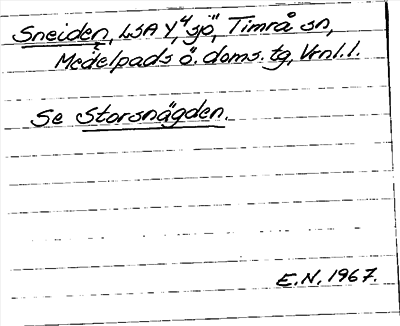 Sneiden, LSA Y,4 "sjö", Timrå sn,
Medelpads ö. doms. tg, Vrnl.l.
Se Storsnägden.
E.N. 1967.